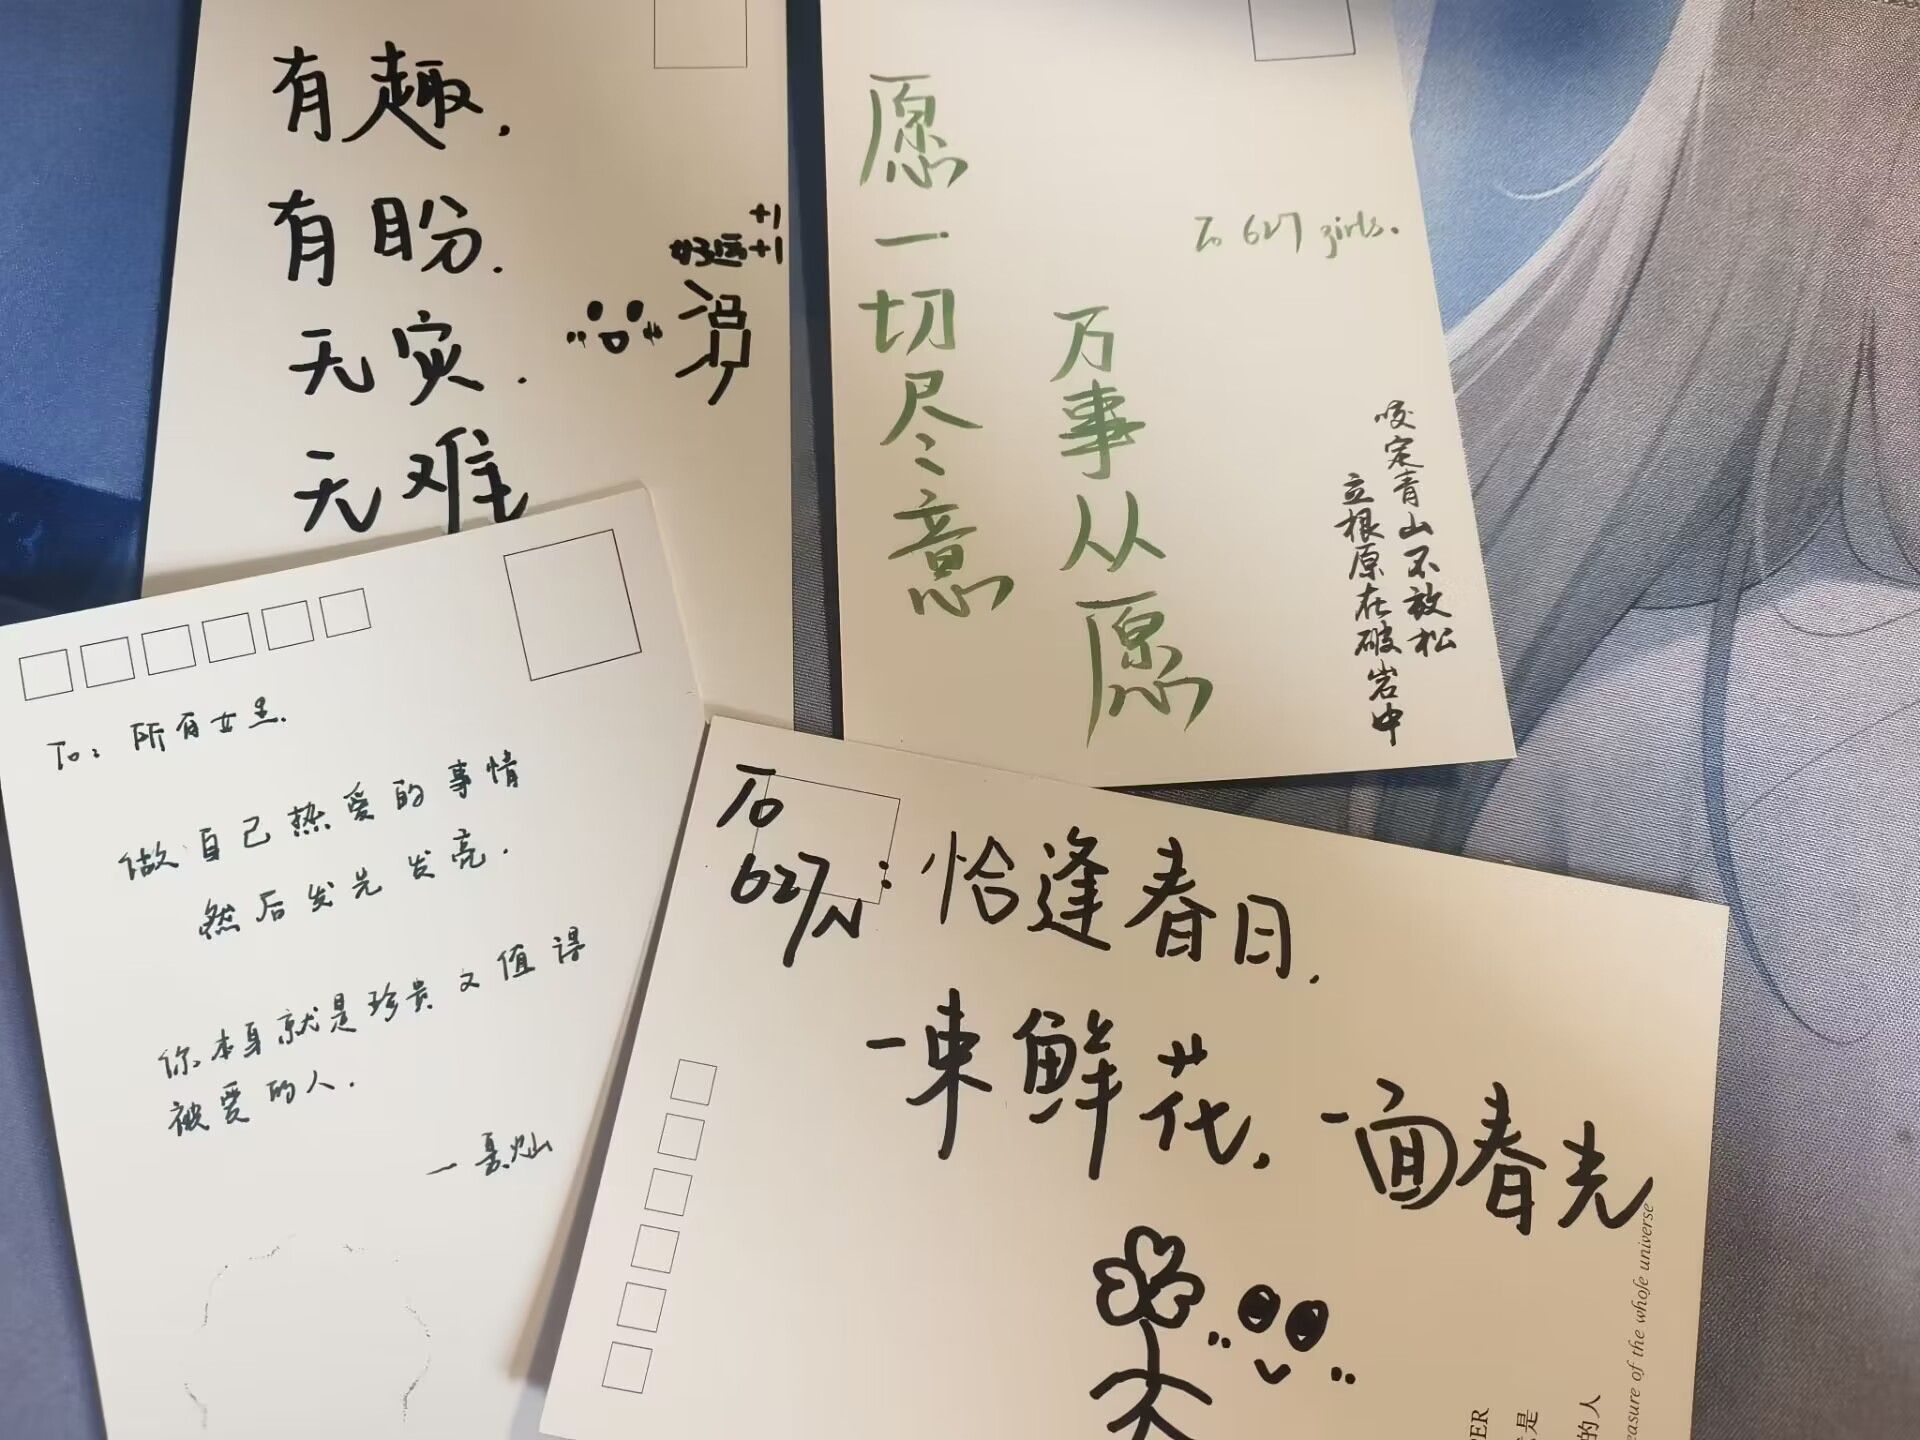 有趣,
有盼.
无灾.
无难
+1
好运+1
愿一切尽意
万事从愿
To 627 girls.
咬定青山不放松
立根原在破岩中
To: 所有女生.
做自己热爱的事情
然后发光发亮.
你本身就是珍贵又值得
被爱的人.
To
627/N:
恰逢春日,
一束鲜花,一面春光
easure of the whole universe
的人
是
TER